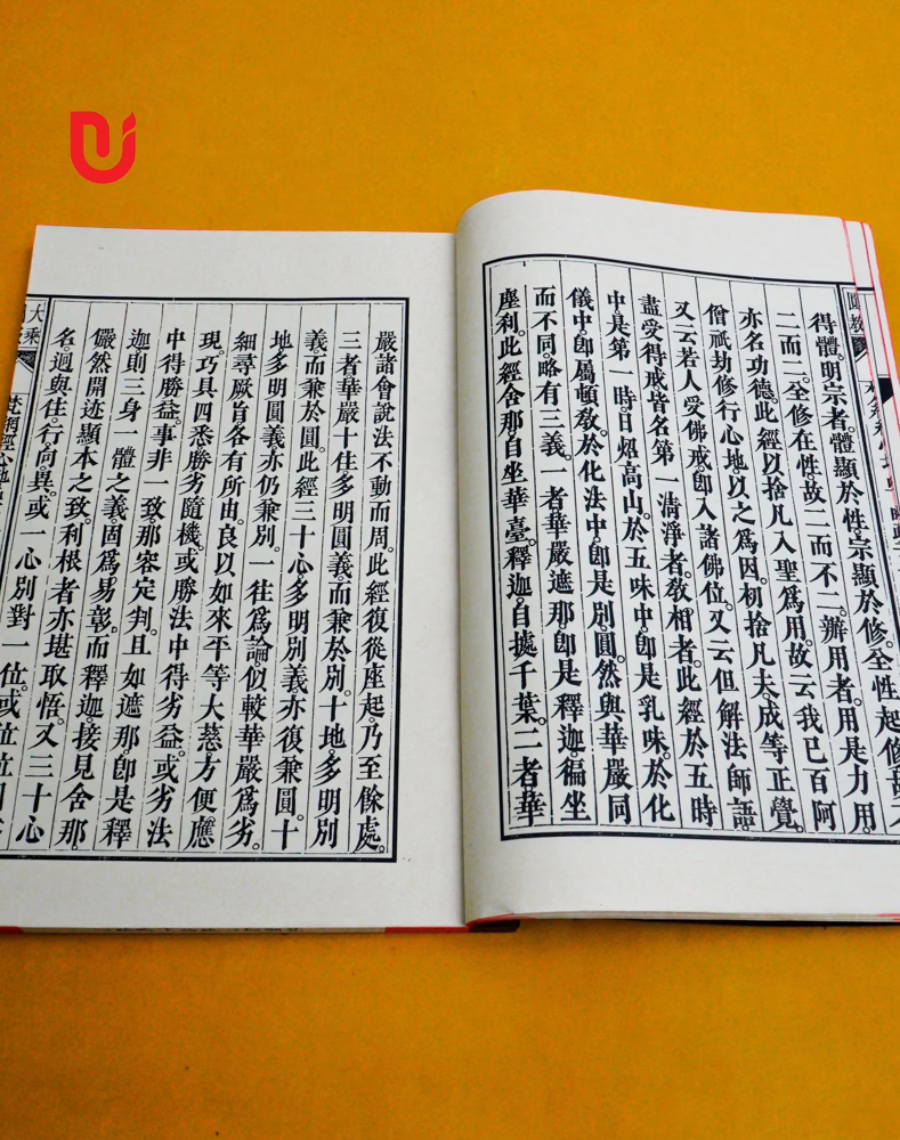 得體。明宗者。體顯於性。宗顯於修。全性起修。故
二而二。全修在性。故二而不二。辯用者。用是力用。
亦名功德。此經以捨凡入聖爲用。故云我已百阿
僧祇劫修行心地。以之爲因。初捨凡夫。成等正覺。
又云若人受佛戒。卽入諸佛位。又云但解法師語。
盡受得戒。皆名第一清淨者。敎相者。此經於五時
中。是第一時。日炤高山。於五味中。卽是乳味。於化
儀中。卽屬頓敎。於化法中。卽是別圓。然與華嚴同
而不同。略有三義。一者華嚴遮那。卽是釋迦。徧坐
塵刹。此經舍那。自坐華臺。釋迦。自據千葉。二者華
嚴諸會說法不動而周。此經復從座起。乃至餘處。
三者華嚴十住多明圓義。而兼於別。十地。多明別
義。而兼於圓。此經三十心多明別義亦復兼圓。十
地多明圓義。亦仍兼別。一往爲論。似較華嚴爲劣。
細尋厥旨。各有所由。良以如來平等大慈。方便應
現。巧具四悉。勝劣隨機。或勝法中得劣益。或劣法
中得勝益。事非一致。那容定判。且如遮那。卽是釋
迦。則三身一體之義。固爲易彰。而釋迦。接見舍那。
儼然開迹顯本之致。利根者亦堪取悟。又三十心
名。迥與住。行。向。異。或一心別對一位。或位位
大乘
梵網經心地